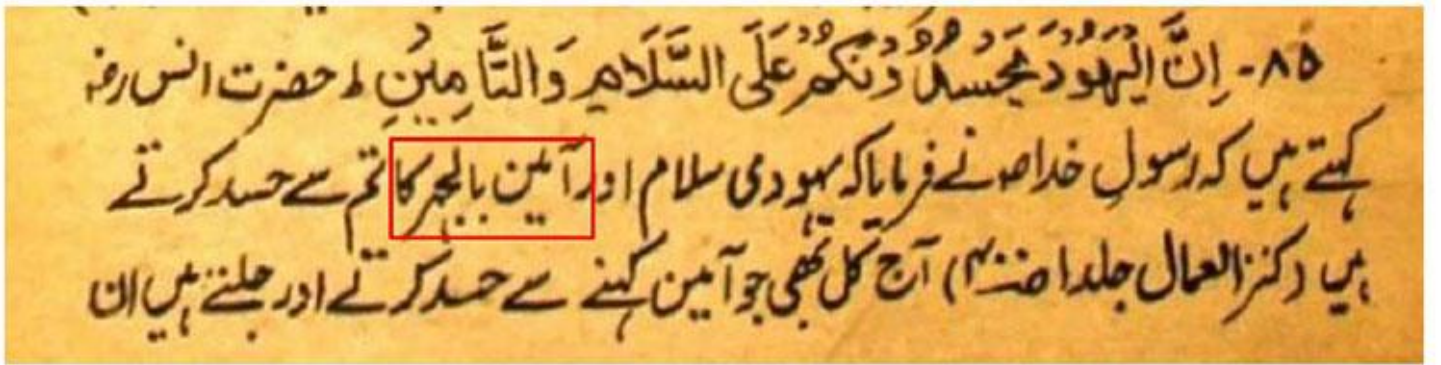 ۸۵- اِنَّ الْیَهُوْدَ یَحْسُدُوْنَکُمْ عَلَی السَّلَامِ وَالتَّأْمِیْنِ ط حضرت انس رضہ
کہتے ہیں کہ رسولِ خدا صہ نے فرمایا کہ یہودی سلام اور آمین بالجہر کا تم سے حسد کرتے
ہیں (کنز العمال جلد ا) آج کل بھی جو آمین کہنے سے حسد کرتے اور جلتے ہیں ان